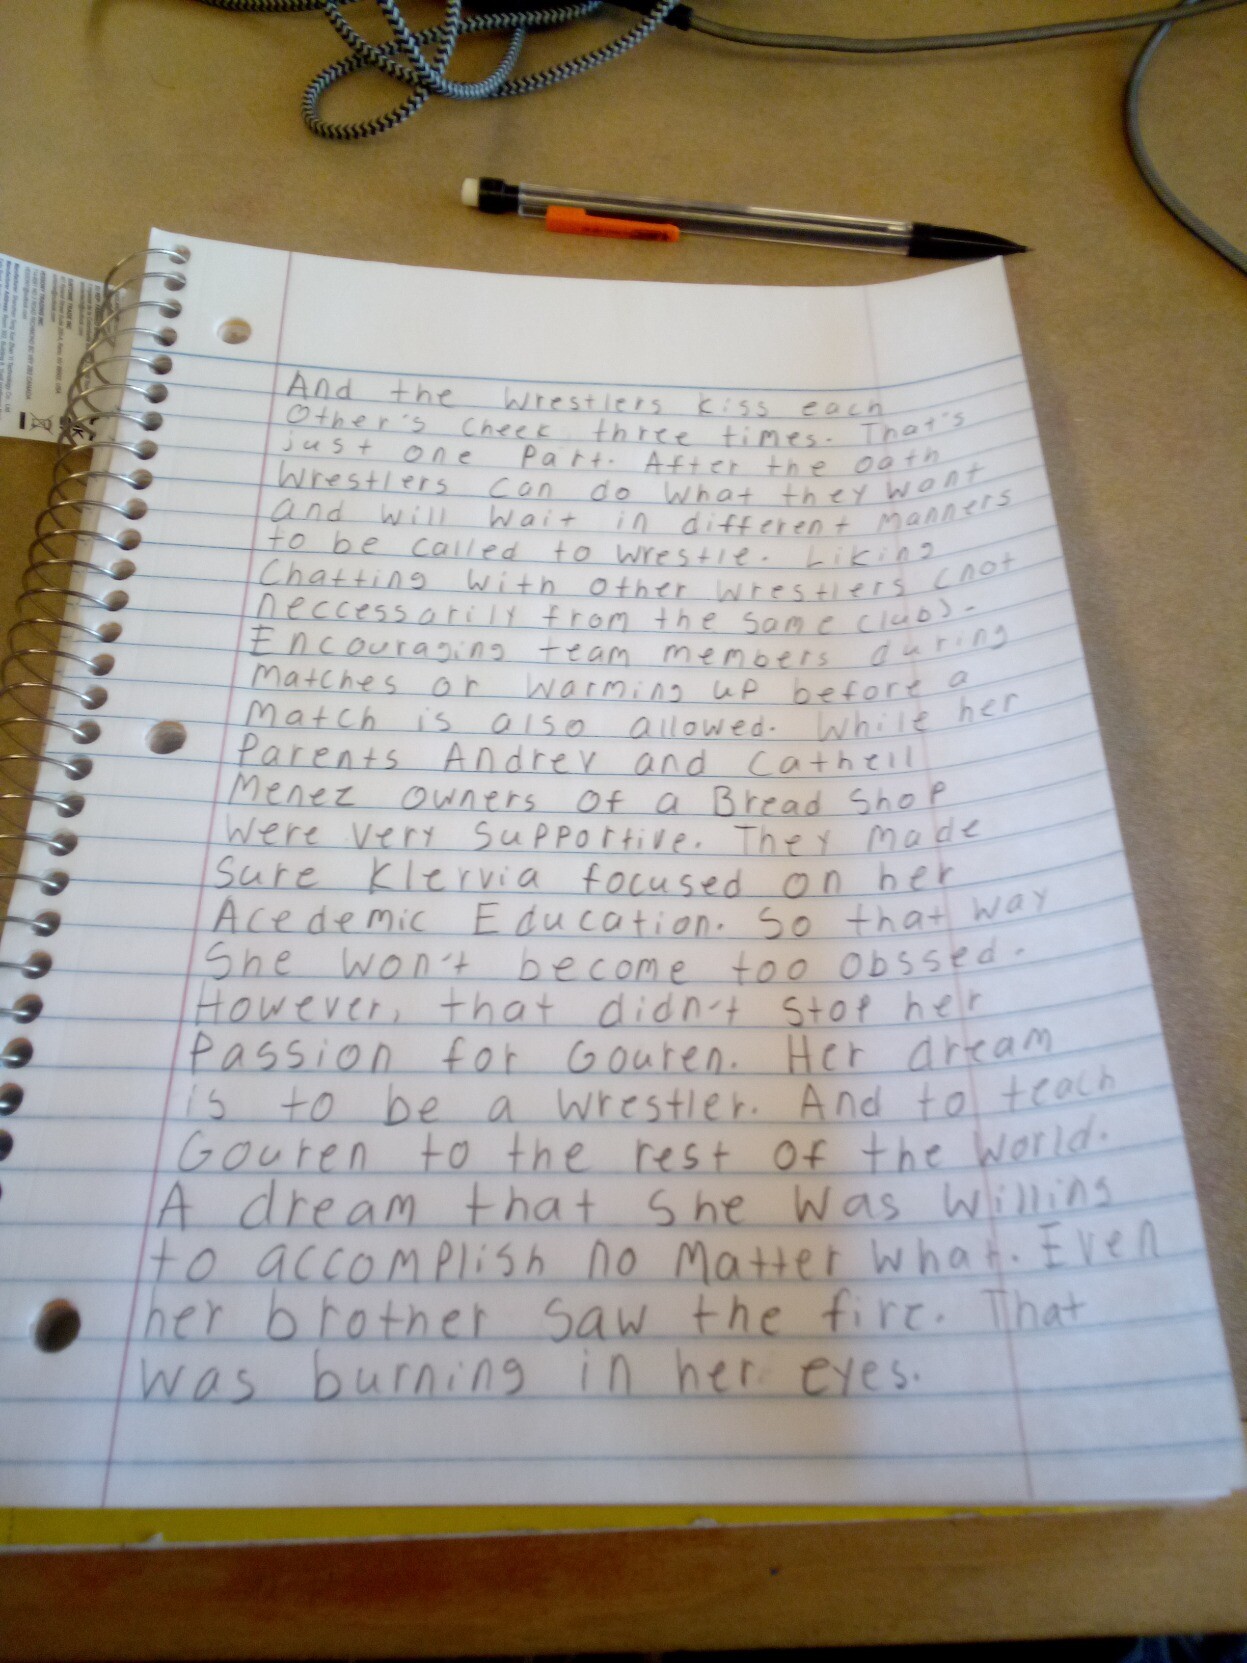 And the wrestlers kiss each
Other's cheek three times. That's
just one part. After the oath
Wrestlers can do what they want
and will wait in different manners
to be called to wrestle. Liking
Chatting with other wrestlers (not
neccessarily from the same club).
Encouraging team members during
matches or warming up before a
match is also allowed. While her
Parents Andrev and Cathell
Menez owners of a Bread Shop
were very supportive. They made
Sure Klervia focused on her
Acedemic Education. So that way
She won't become too obssed.
However, that didn't stop her
Passion for Gouren. Her dream
is to be a wrestler. And to teach
Gouren to the rest of the world.
A dream that she was willing
to accomplish no matter what. Even
her brother saw the fire. That
was burning in her eyes.